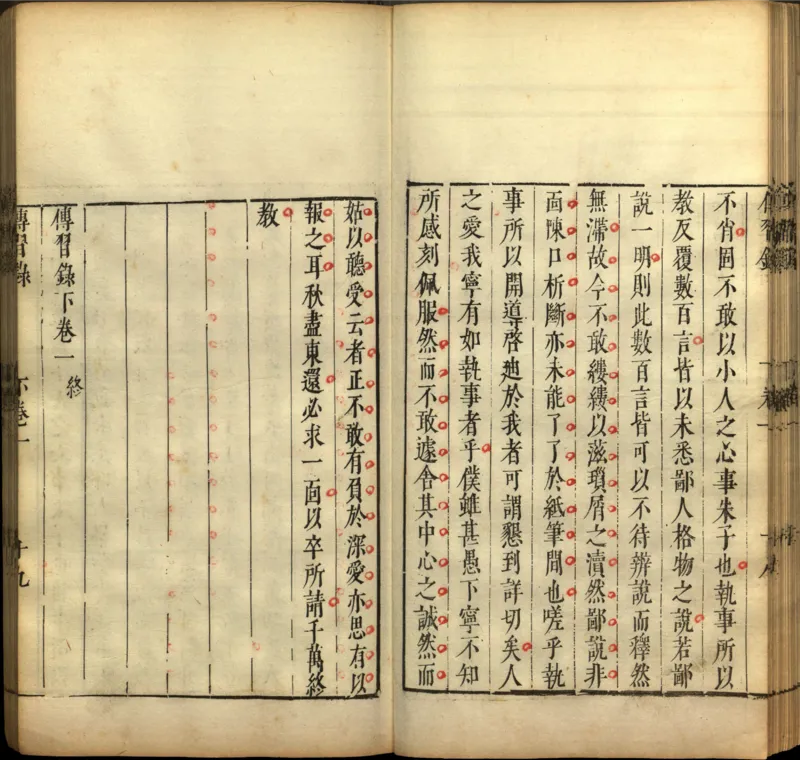 傳習錄 卷一 十八
不肖固不敢以小人之心事朱子也執事所以
教反覆數百言皆以未悉鄙人格物之說若鄙
說一明則此數百言皆可以不待辨說而釋然
無滯故今不敢縷縷以滋瑣屑之瀆然鄙說非
面陳口析斷亦未能了了於紙筆間也嗟乎執
事所以開導啓迪於我者可謂懇到詳切矣人
之愛我寧有如執事者乎僕雖甚愚下寧不知
所感刻佩服然而不敢遽舍其中心之誠然而
姑以聽受云者正不敢有負於深愛亦思有以
報之耳秋盡東還必求一面以卒所請千萬終
教
傳習錄下卷一 終
傳習錄 卷一 十九